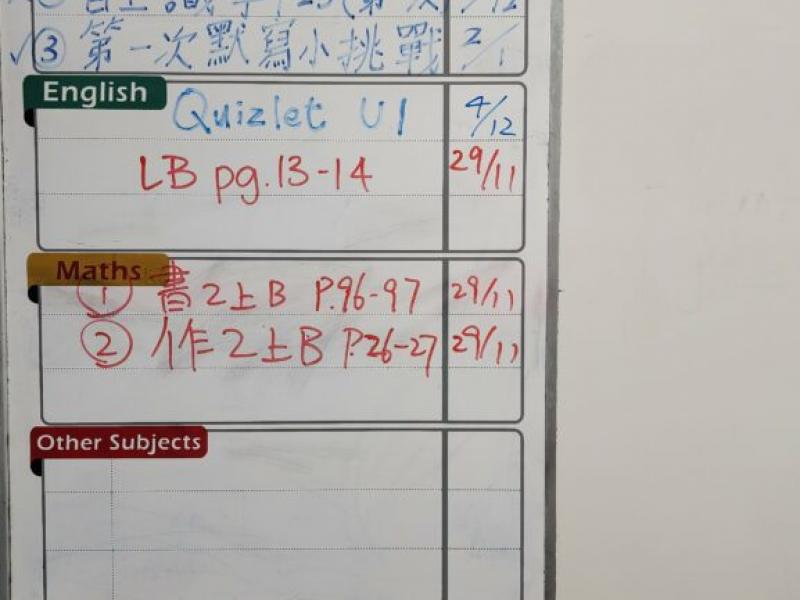 ③ 第一次默寫小挑戰 2/1
English
Quizlet U1 4/12
LB pg.13-14 29/11
Maths
① 書2上B P.96-97 29/11
② 作2上B P.26-27 29/11
Other Subjects